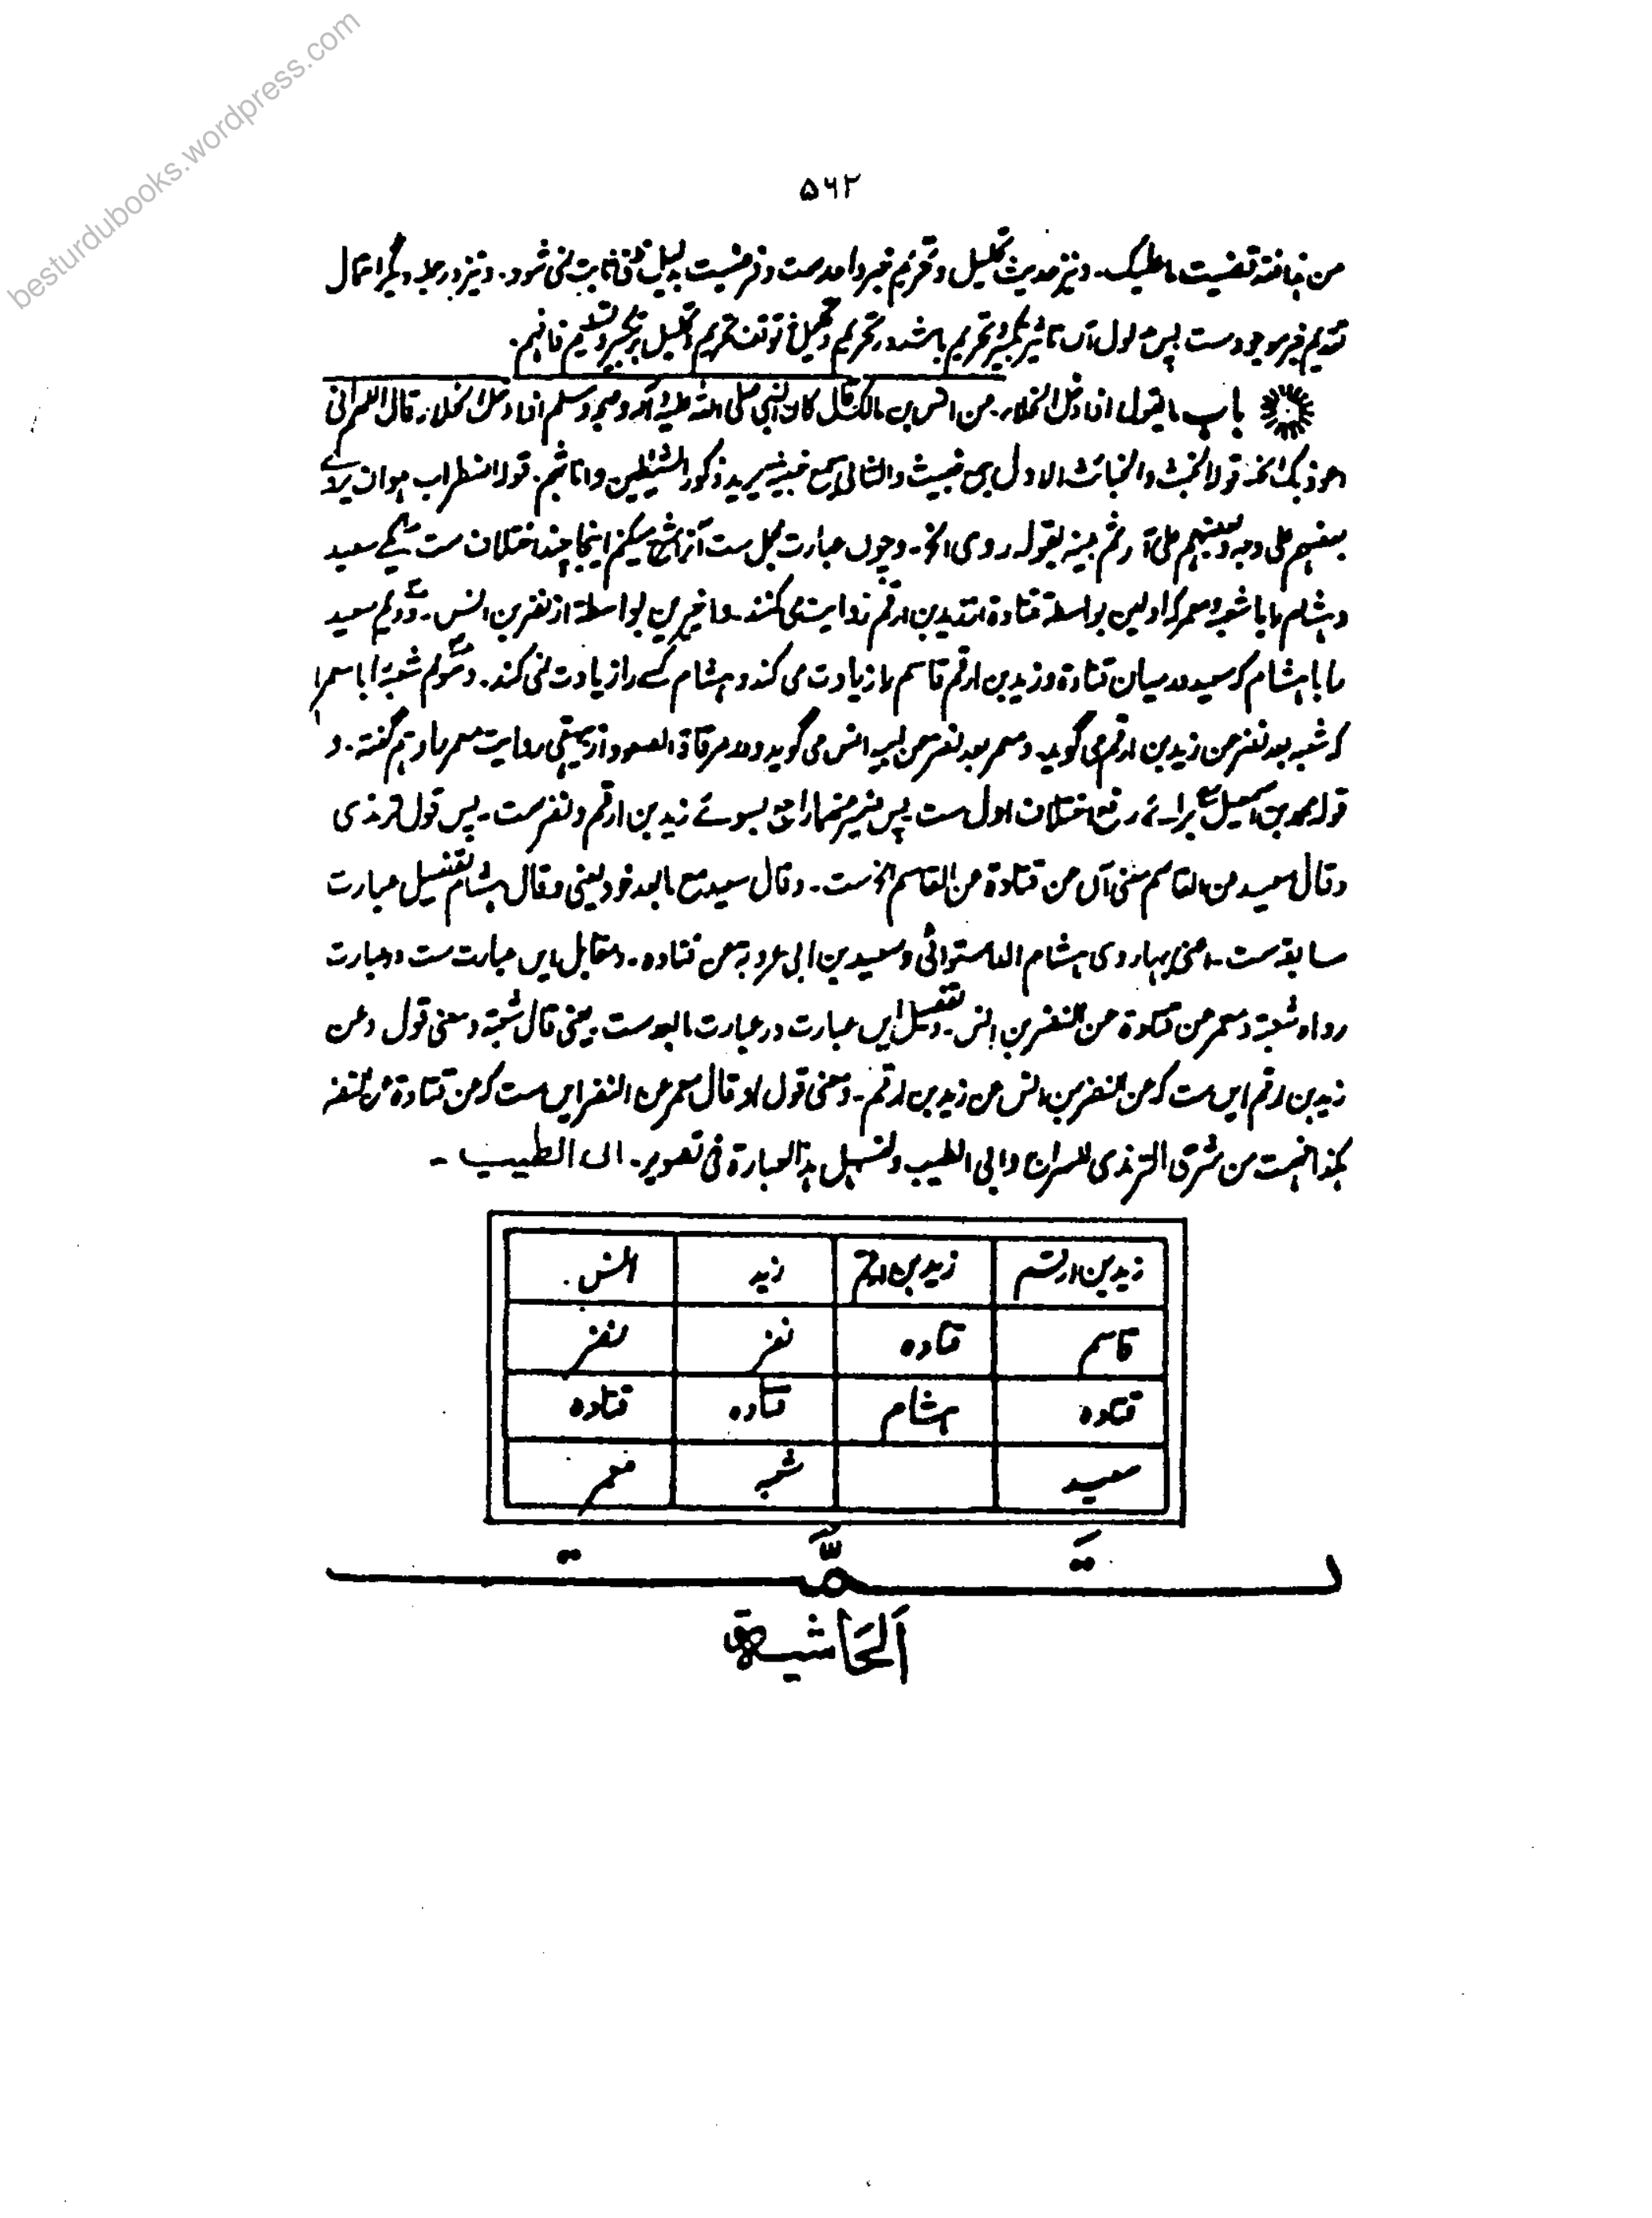 besturdubooks.wordpress.com
۵۶۲
من نہا فقد قضیت ما علیک۔ و نیز حدیث تحلیل و تحریم خبر واحد ست و فرضیت بدلیل ظنی ثابت نمی شود۔ و نیز در جملہ دیگر احتمال
تقدیم خبر موجود ست پس مدلول آں تاثیر تکبیر و تحریم باشد در تحریم و تحلیل نہ توقف تحریم و تحلیل بر تکبیر و تسلیم فافہم۔
باب ما یقول اذا دخل الخلاء۔ عن انس بن مالک قال کان النبی صلی اللہ علیہ وآلہ وصحبہ وسلم اذا دخل الخلاء قال اللہم انی
اعوذ بک الخ قولہ الخبث والخبائث الاول جمع خبیث والثانی جمع خبیثۃ یرید ذکور الشیٰطین واناثہم۔ قولہ اضطراب ہو ان
بعضہم علی وجہ وبعضہم علی آخر ثم بینہ بقولہ روی الخ۔ وچوں عبارت مجمل ست آنرا شرح میکنم اینجا چند اختلاف ست یکے سعید
وہشام را با شعبہ ومعمر کہ اولین بواسطۃ قتادہ از زید بن ارقم روایت می کنند۔ واخیرین بواسطۃ از نضر بن انس۔ دویم سعید
را با ہشام کہ سعید درمیان قتادہ وزید بن ارقم قاسم را زیادت می کند وہشام کسے را زیادت نمی کند۔ وسویم شعبہ را با معمر
کہ شعبہ بعد نضر عن زید بن ارقم می گوید۔ ومعمر بعد نضر عن ابیہ انس می گوید ودر مرقاۃ الصعود از بیہقی روایت معمر را وہم گفتہ۔ و
قول محمد بن اسمعیل برائے رفع اختلاف اول ست پس ضمیر عنہما راجع بسوئے زید بن ارقم ونضر ست۔ پس قول ترمذی
وقال سعید عن القاسم معنی آں عن قتادۃ عن القاسم الخ ست۔ وقال سعید مع ما بعد خود یعنی وقال ہشام تفصیل عبارت
سابقہ ست۔ اعنی بہا روی ہشام الدستوائی وسعید بن ابی عروبۃ عن قتادہ۔ ومقابل ایں عبارت ست و عبارت
رواہ شعبۃ ومعمر عن قتادۃ عن النضر بن انس۔ وتفصیل ایں عبارت در عبارت ما بعد ست۔ یعنی قال شعبۃ ومعنی قول وعن
زید بن ارقم ایں ست کہ عن النضر بن انس عن زید بن ارقم۔ ومعنی قول او قال معمر عن النضر ایں ست کہ عن قتادۃ عن النضر
ہکذا فہمت من شرحی الترمذی للسراج وابی الطیب ولنسہل ہذہ العبارۃ فی تصویر۔ الی الطیب ۔
زید بن ارقم زید بن ارقم زید انس
قاسم قتادہ نضر نضر
قتادہ ہشام قتادہ قتادہ
سعید شعبہ معمر
تَمَّت
اَلحَاشیۃ